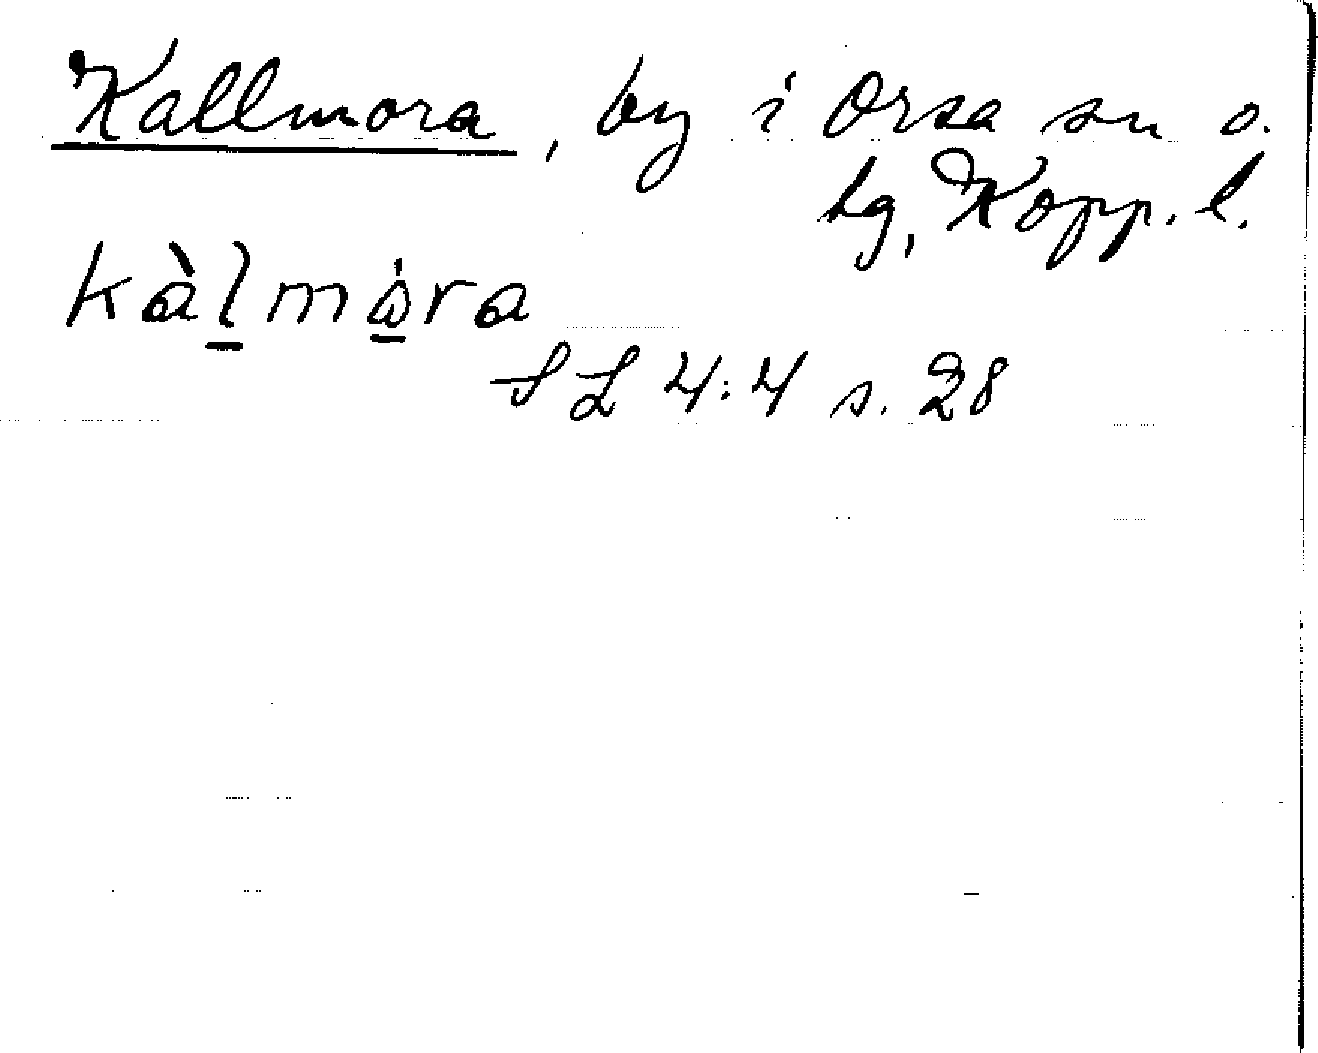 Kallmora, by i Orsa sn o.
hg, Kopp. l.
kàl̠mȧ̠ra
SL 4:4 s. 28